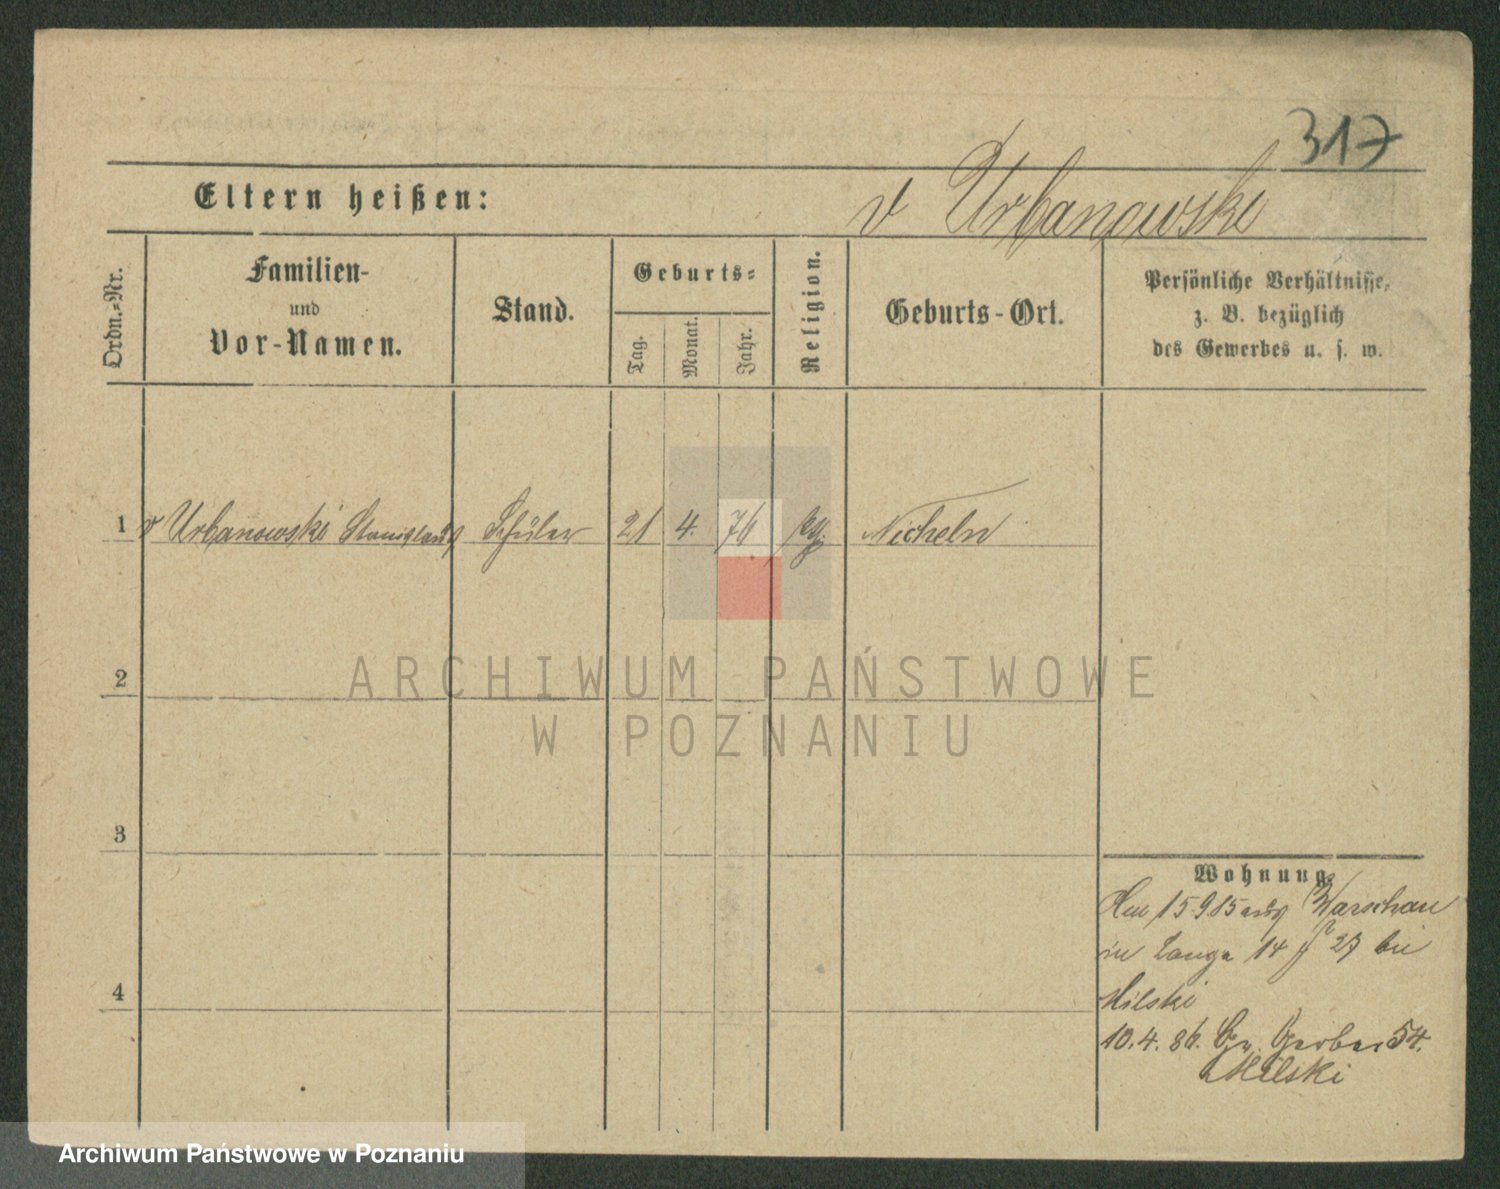 317
Eltern heißen: v Urbanowski
Ordn.-Nr.
Familien-
und
Vor-Namen.
Stand.
Geburts-
Tag.
Monat.
Jahr.
Religion.
Geburts-Ort.
Persönliche Verhältnisse,
z. B. bezüglich
des Gewerbes u. s. w.
1 v Urbanowski Stanislaus Schüler 21 4. 76 Nicheln
2
3
4
Wohnung.
15 9 85 aus Warschau
in Lange 14 27 bei
Milski
10. 4. 86. Gr. Gerber 54.
Milski
ARCHIWUM PAŃSTWOWE
W POZNANIU
Archiwum Państwowe w Poznaniu